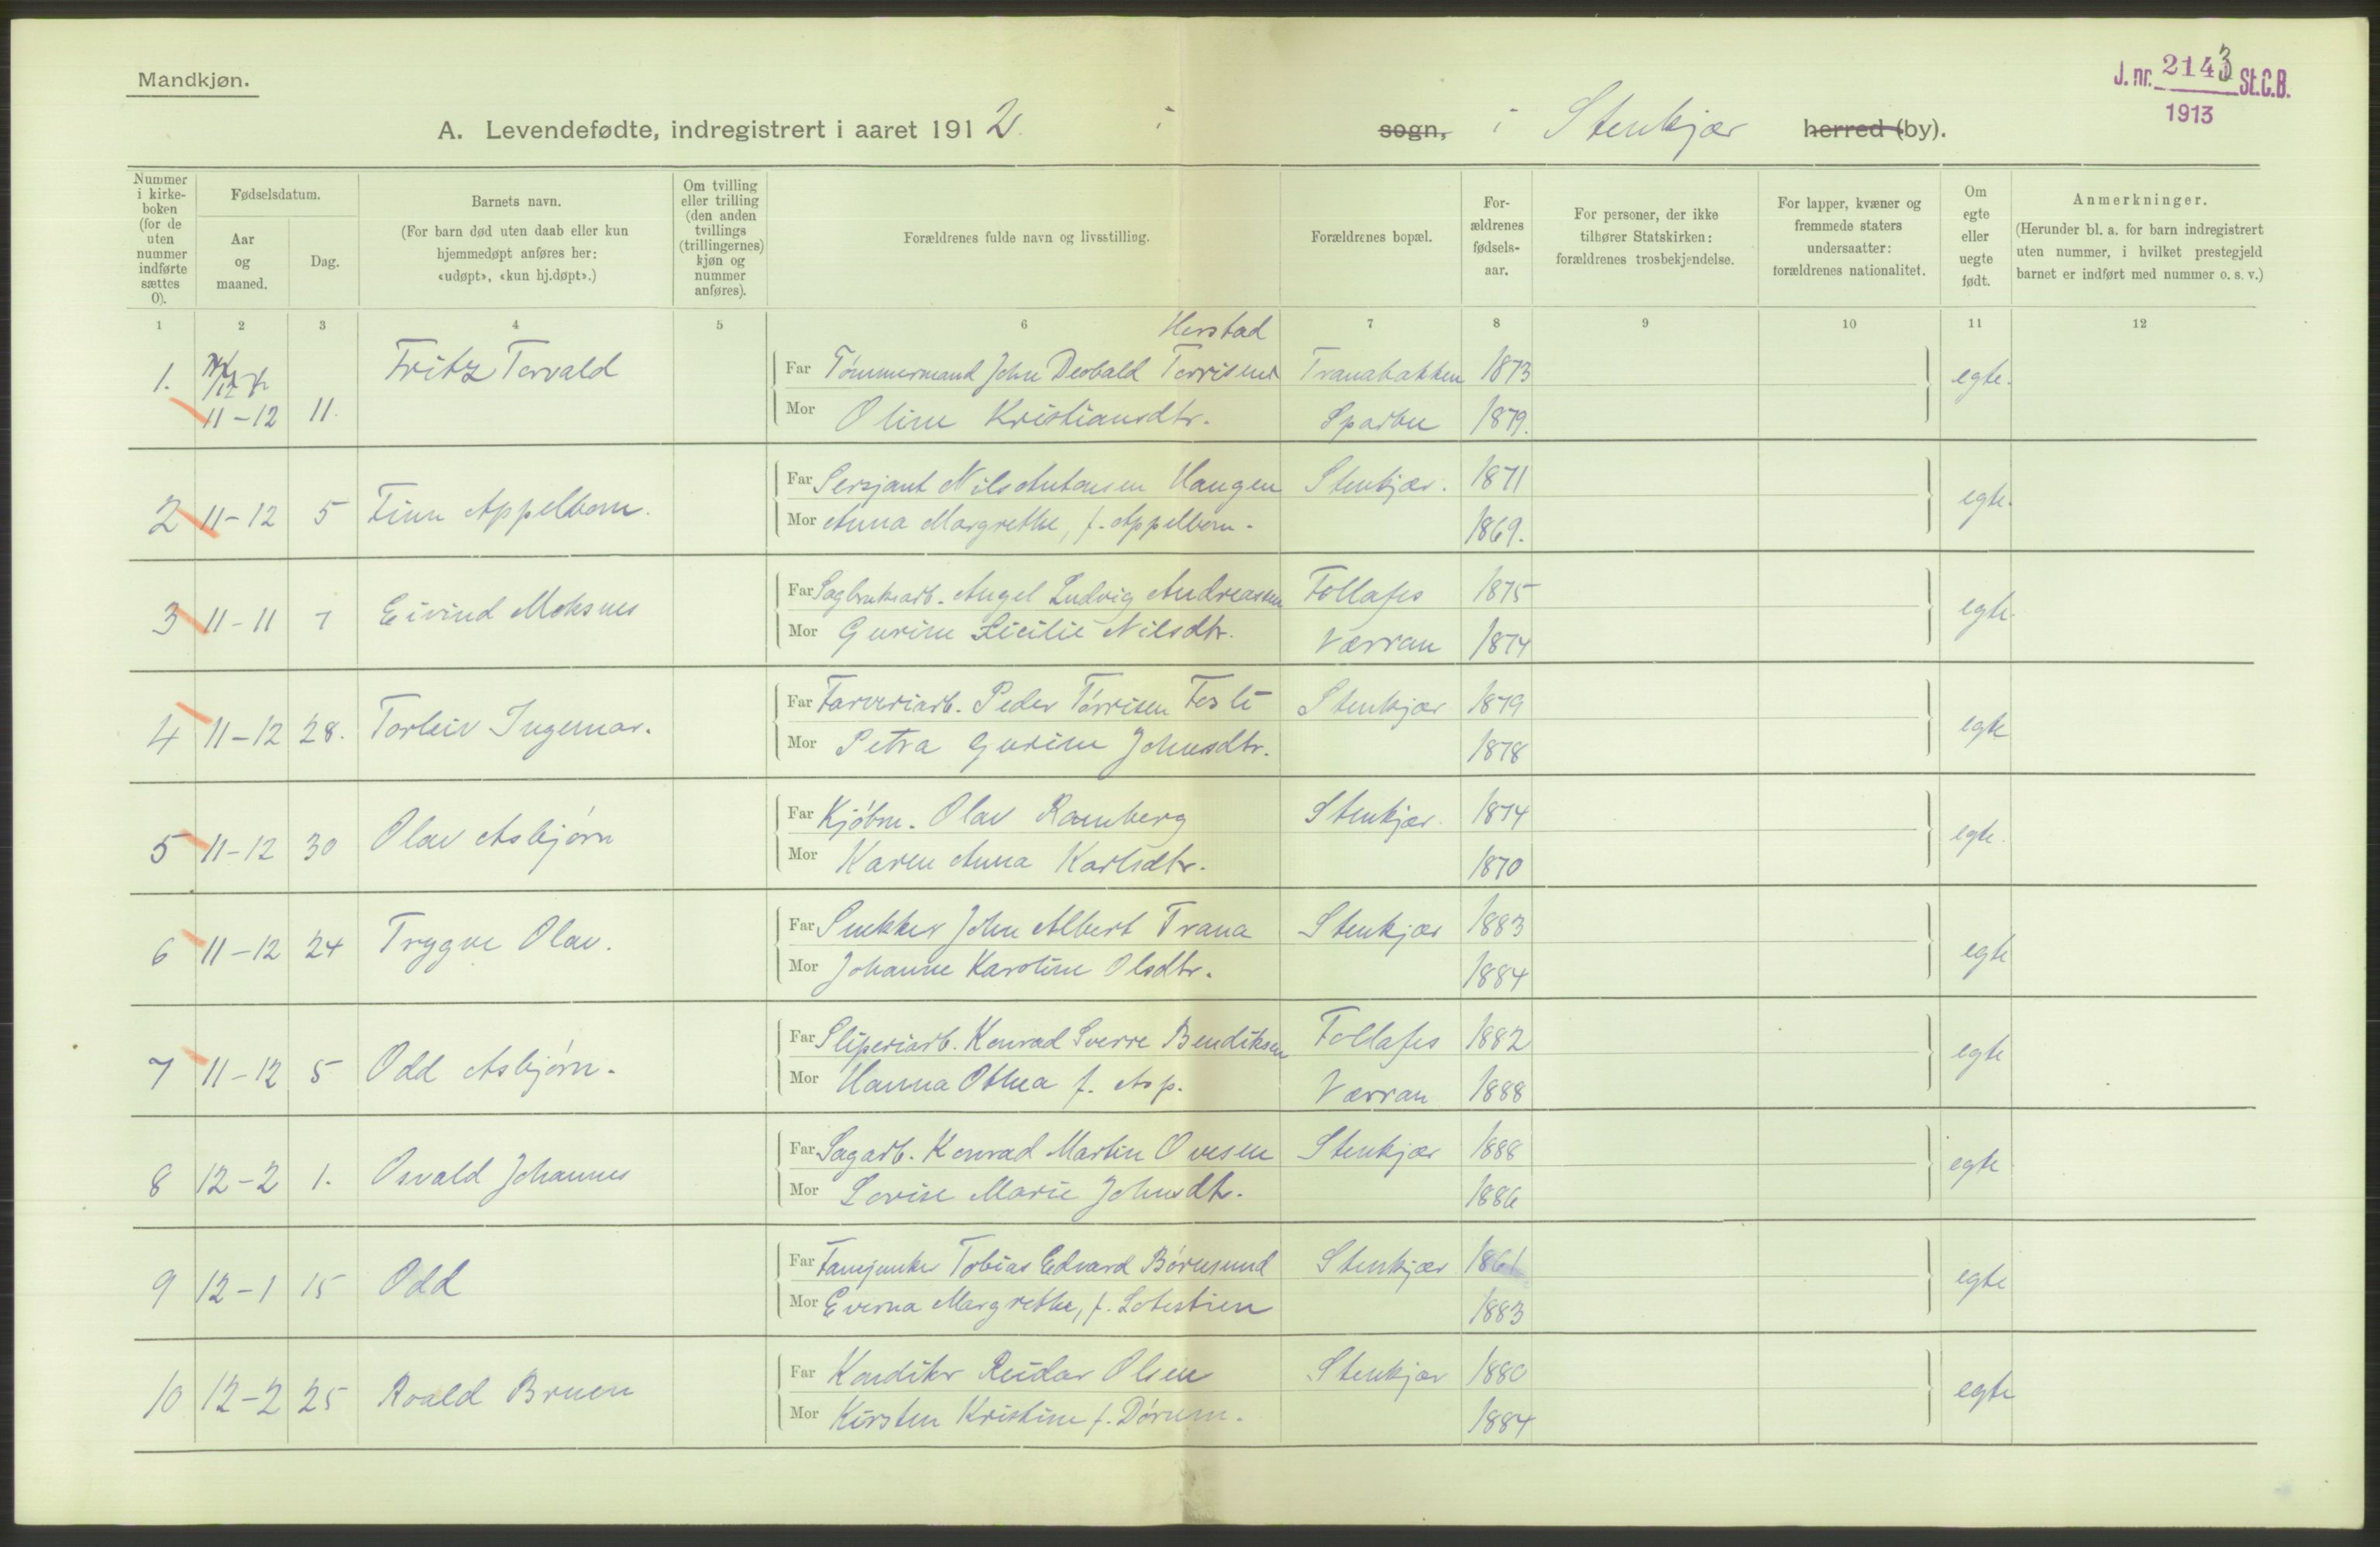 Mandkjøn.
J. nr. 2143 St.C.B.
1913
A. Levendefødte, indregistrert i aaret 1912. i sogn, i Stenkjær herred (by).
Nummer i kirkeboken (for de uten nummer indførte sættes 0).
Fødselsdatum.
Aar og maaned.
Dag.
Barnets navn.
(For barn død uten daab eller kun hjemmedøpt anføres her: «udøpt», «kun hj.døpt».)
Om tvilling eller trilling (den anden tvillings (trillingernes) kjøn og nummer anføres).
Forældrenes fulde navn og livsstilling.
Forældrenes bopæl.
Forældrenes fødselsaar.
For personer, der ikke tilhører Statskirken: forældrenes trosbekjendelse.
For lapper, kvæner og fremmede staters undersaatter: forældrenes nationalitet.
Om egte eller uegte født.
Anmerkninger.
(Herunder bl. a. for barn indregistrert uten nummer, i hvilket prestegjeld barnet er indført med nummer o. s. v.)
1 2 3 4 5 6 7 8 9 10 11 12
Herstad
1. 11-12 11. Fritz Torvald Far Tømmermand John Deobald Torrisen Tranabakken 1873 egte.
Mor Oline Kristiansdtr. Sparbu 1879.
2 11-12 5 Finn Appelbom. Far Sersjant Nils Antonsen Haugen Stenkjær. 1871 egte.
Mor Anna Margrethe, f. Appelbom. 1869.
3 11-11 7 Eivind Moksnes Far Sagbruksarb. Angel Ludvig Andreassen Follafos 1875 egte.
Mor Gurine Sicilie Nilsdtr. Værran 1874
4 11-12 28. Torleiv Ingemar. Far Farveriarb. Peder Tørrisen Stenkjær 1879 egte
Mor Petra Gurine Johnsdtr. 1878
5 11-12 30 Olav Asbjørn Far Kjøbm. Olav Ramberg Stenkjær. 1874 egte.
Mor Karen Anna Karlsdtr. 1870
6 11-12 24 Trygve Olav. Far Snekker John Albert Trana Stenkjær 1883 egte
Mor Johanne Karoline Olsdtr. 1884
7 11-12 5 Odd Asbjørn. Far Sliperiarb. Konrad Sverre Bendiksen Follafos 1882 egte
Mor Hanna Othea f. Asp. Værran 1888
8 12-2 1. Osvald Johannes Far Sagarb. Konrad Martin Ovesen Stenkjær 1888 egte
Mor Lovise Marie Johnsdtr. 1886
9 12-1 15 Odd Far Fanejunker Tobias Edvard Børresund Stenkjær 1861 egte
Mor Everna Margrethe, f. 1883
10 12-2 25 Roald Bruen Far Konditor Reidar Olsen Stenkjær 1880 egte
Mor Kirsten Kristine f. Dørum. 1884